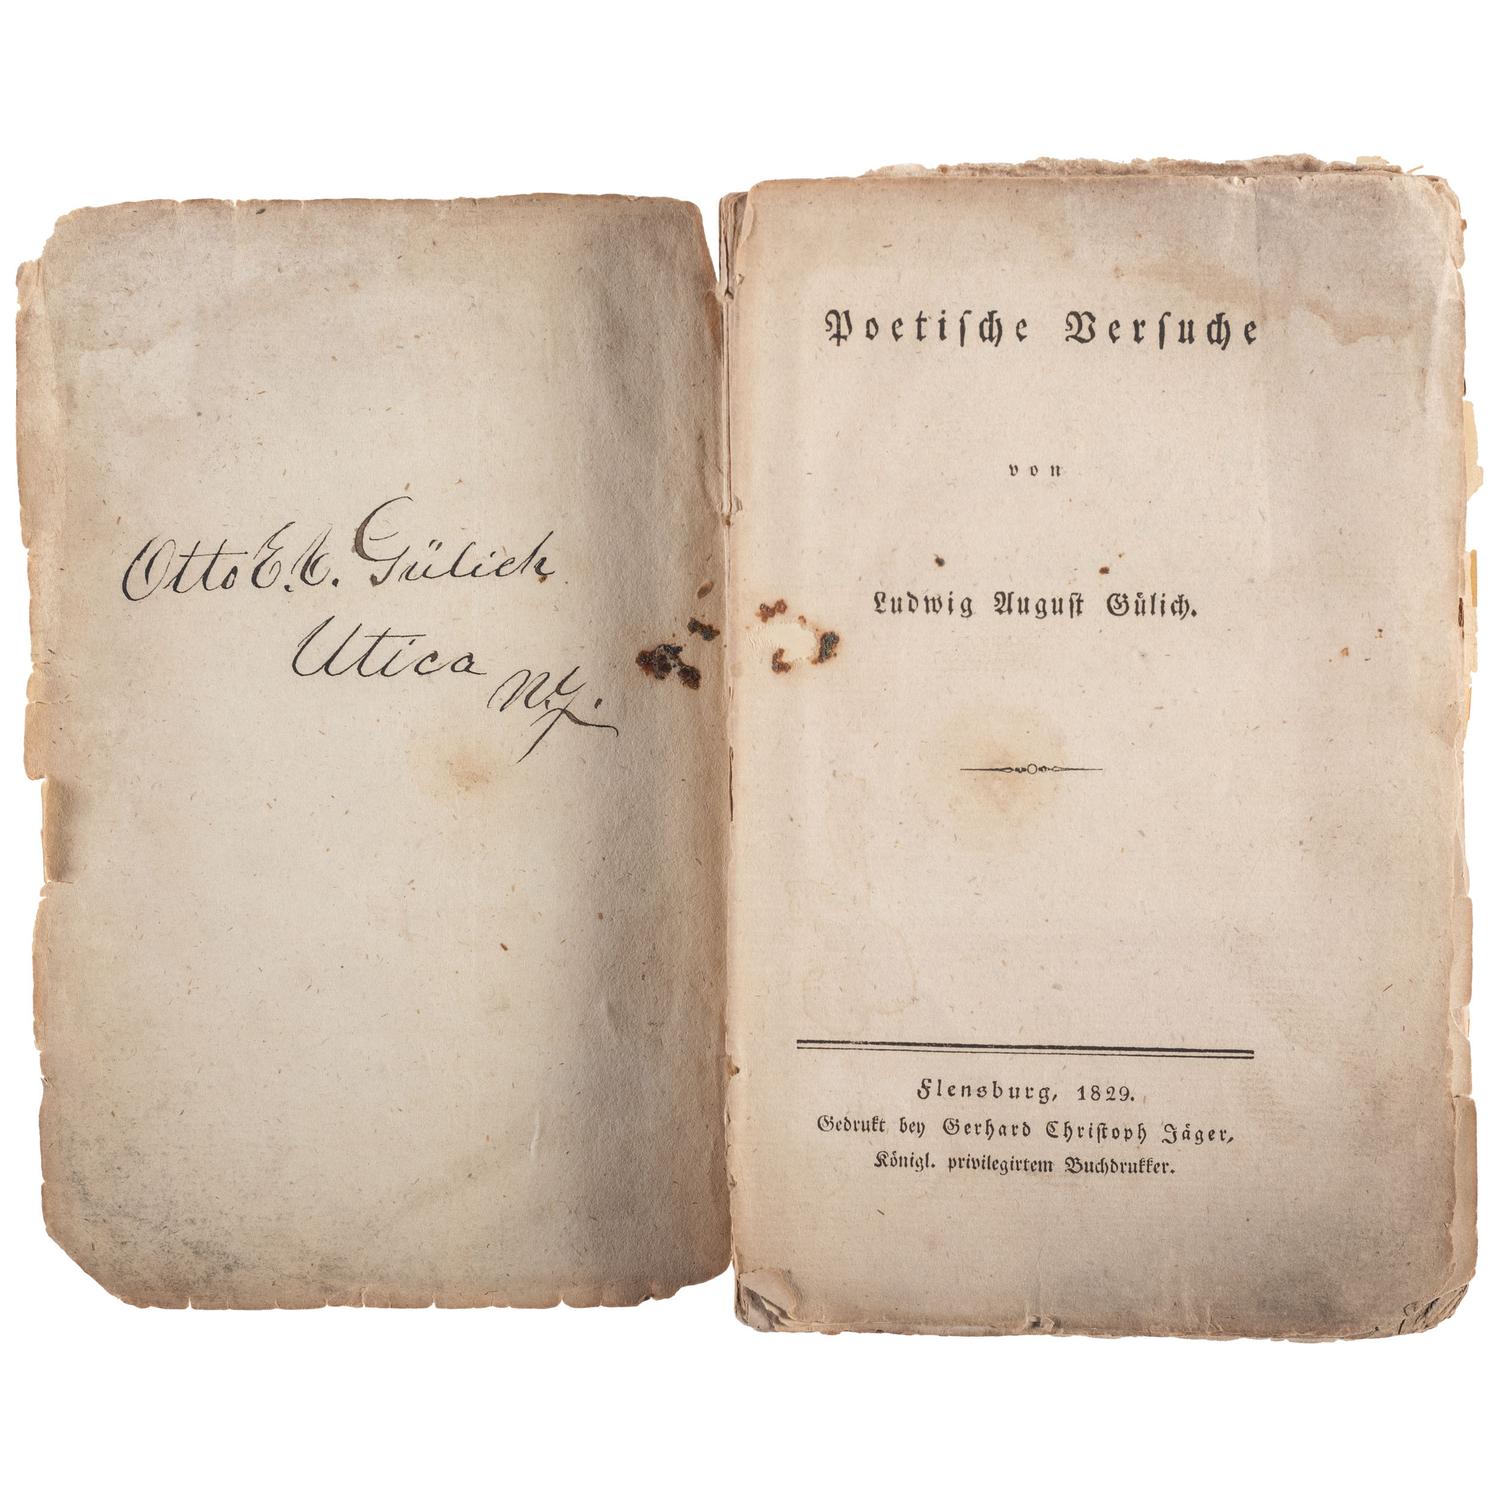 Otto E. C. Gülich
Utica N.Y.
Poetische Versuche
von
Ludwig August Gülich.
Flensburg, 1829.
Gedrukt bey Gerhard Christoph Jäger,
Königl. privilegirtem Buchdrukker.